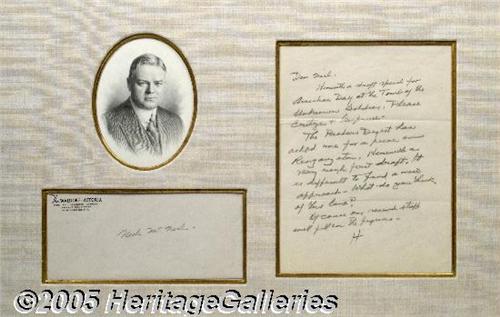 The WALDORF-ASTORIA
Neil Mc Neil -
Dear Neil:
Herewith a draft speech for
Armistice Day at the Tomb of the
Unknown Soldier. Please
The Readers Digest has
asked me for a piece on
Herewith a
very rough first draft. It
is difficult to find a new
approach - What do you think
of this line?
Of course my research staff
will fill in the figures -
H
©2005 HeritageGalleries